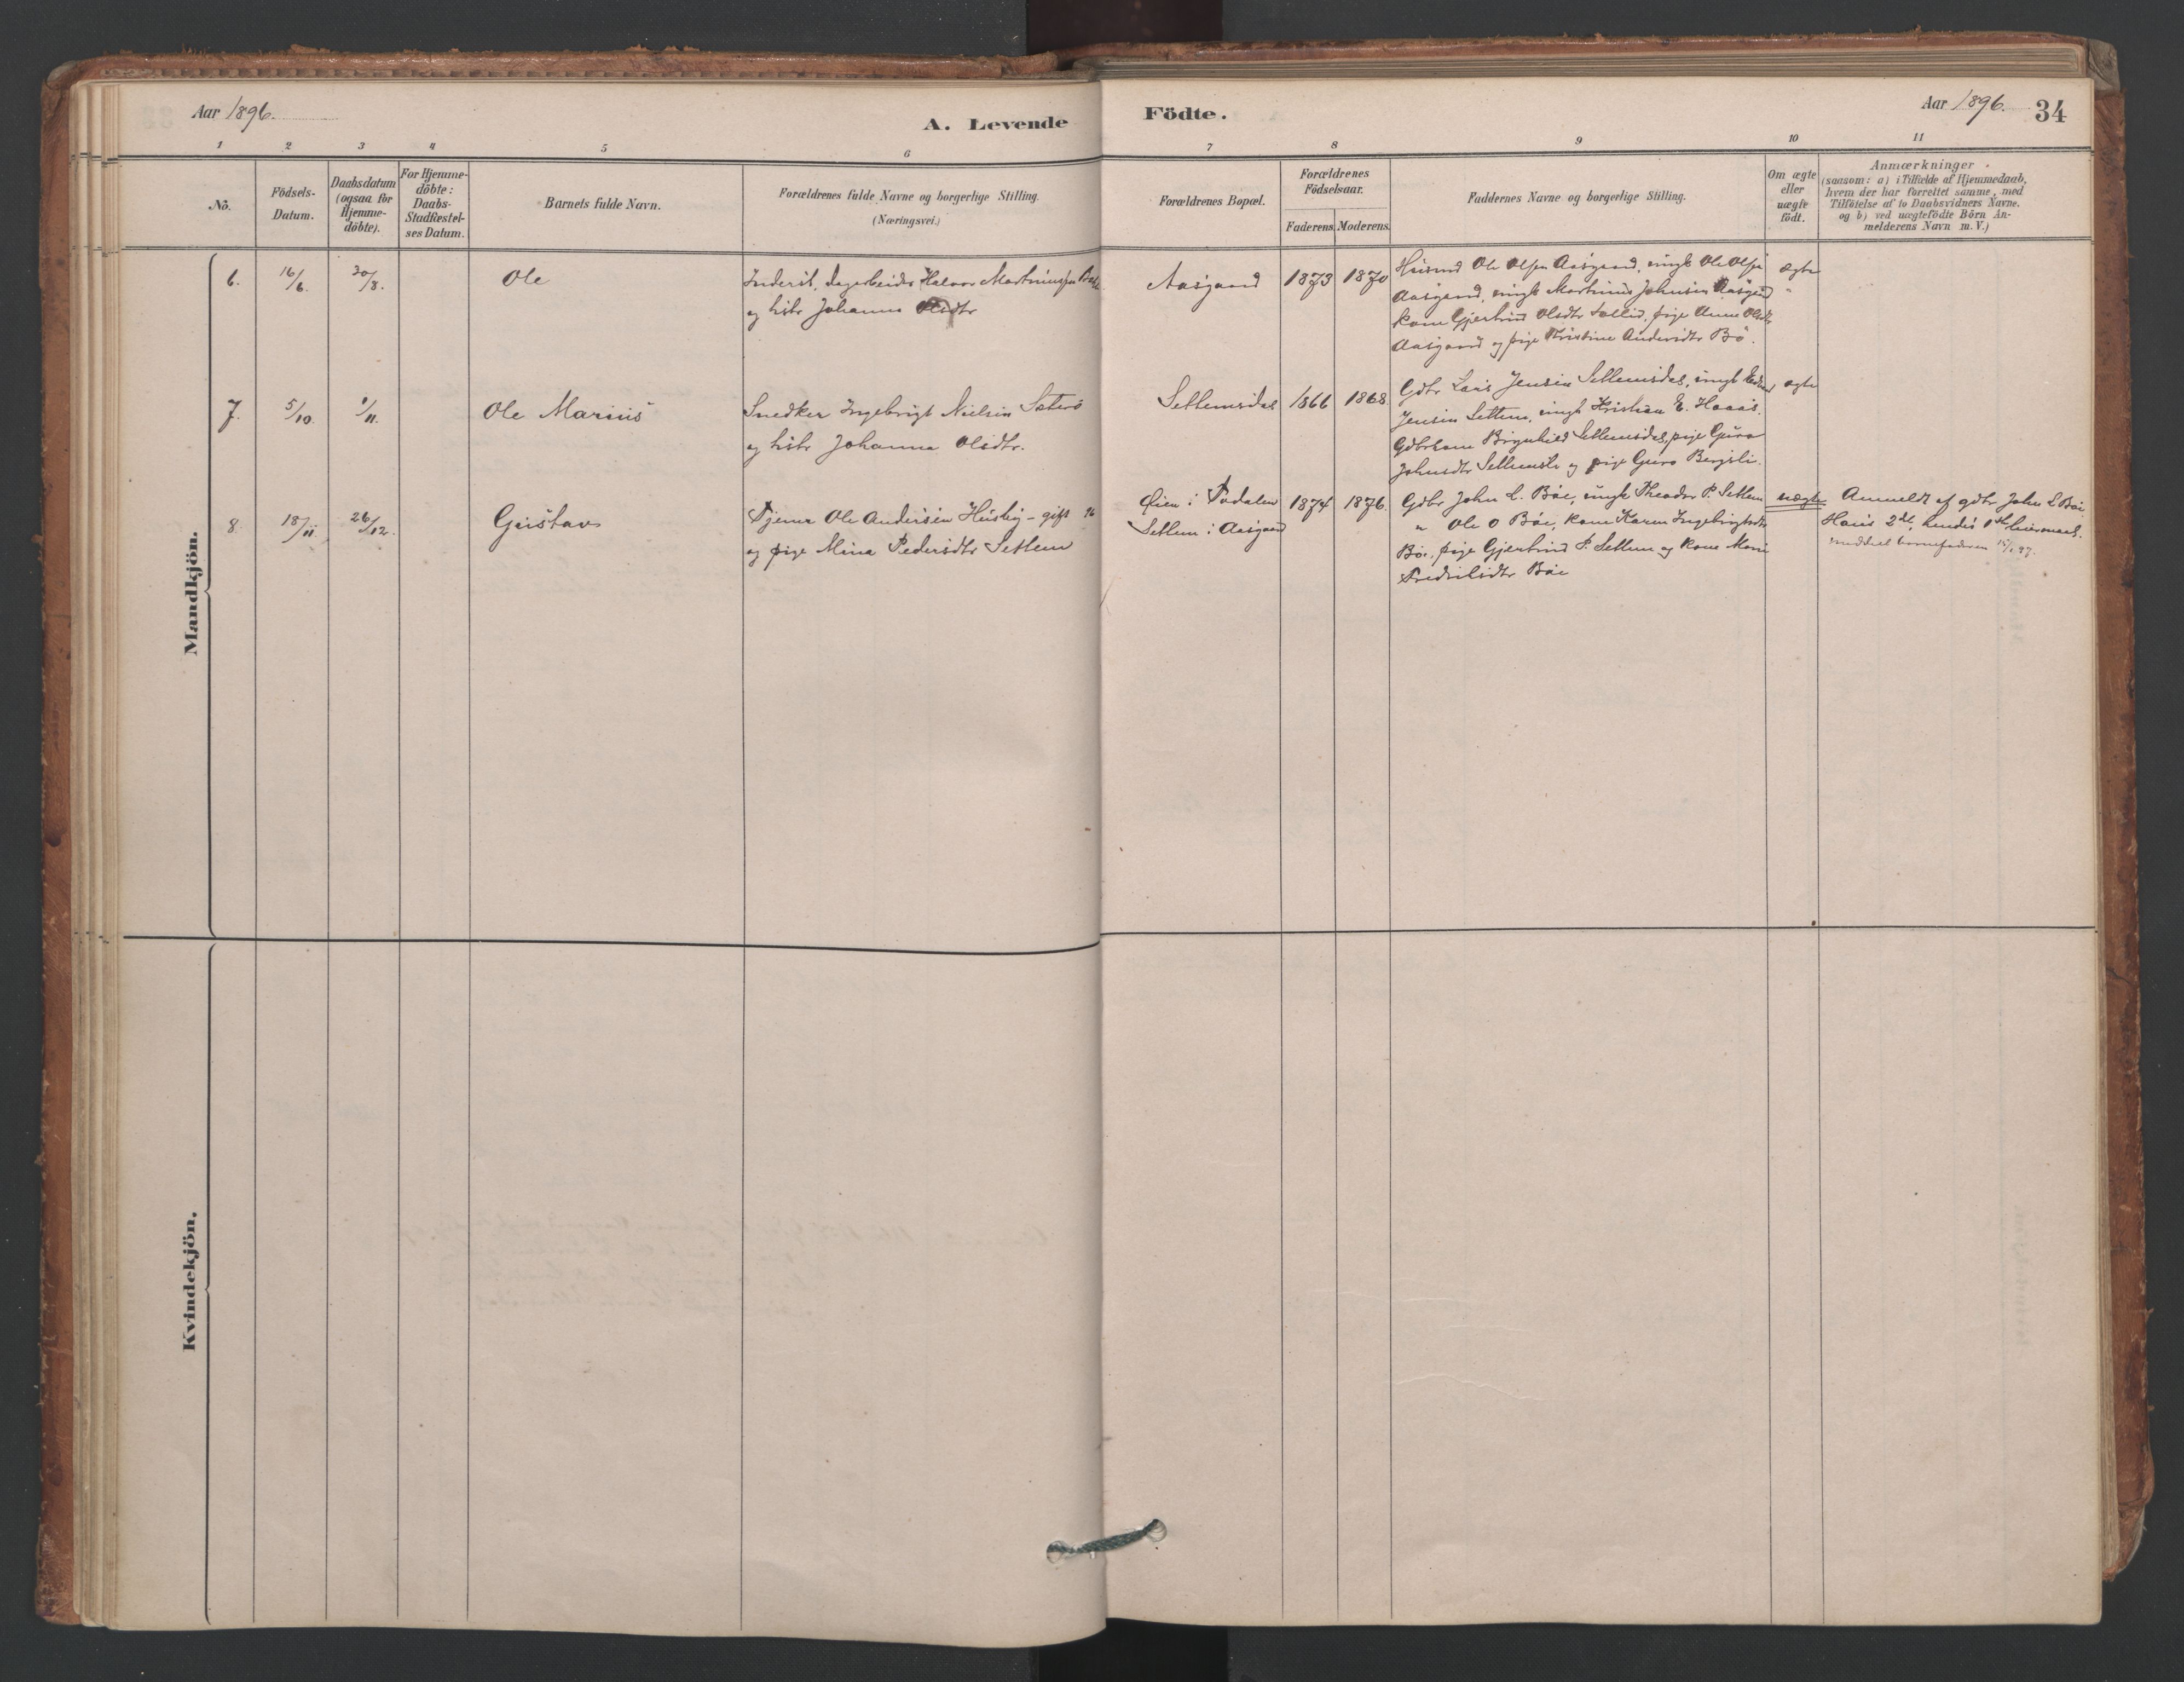 Aar 1896.
A. Levende
Födte.
Aar 1896.
34
1 2 3 4 5 6 7 8 9 10 11
No.
Födsels-
Datum.
Daabsdatum
(ogsaa for
Hjemme-
döbte).
For Hjemme-
döbte:
Daabs-
Stadfæstel-
ses Datum.
Barnets fulde Navn.
Forældrenes fulde Navne og borgerlige Stilling.
(Næringsvei.)
Forældrenes Bopæl.
Forældrenes
Födselsaar.
Faderens. Moderens.
Faddernes Navne og borgerlige Stilling.
Om ægte
eller
uægte
födt.
Anmærkninger
(saasom: a) i Tilfælde af Hjemmedaab,
hvem der har forrettet samme, med
Tilföielse af to Daabsvidners Navne.
og b) ved uægtefödte Börn An-
melderens Navn m. V.)
Mandkjön.
6. 16/6. 30/8. Ole
Inderst, dagarbeider Halvor Martinussen
og hstr Johanna Olsdtr
Aasgaard 1873 1870
Husmd Ole Olsen Aasgaard, ungk Ole Olsen
Aasgaard, ungk Martinus Johnsen Aasgaard
kone Gjertrud Olsdtr Sollid, pige Anne Olsdtr
Aasgaard og pige Kristine Andersdtr Bö.
ægte
"
7. 5/10. 1/11. Ole Marius
Snedker Ingebrigt Nielsen Säterö
og hstr Johanna Olsdtr.
Settemsdal 1866 1868
Gdbr Lars Jensen Settemsdal, ungk
Jensen Settem, ungk Kristian E. Haaas.
Gdbrkone Brynhild Settemsdal, pige Guro
Johnsdtr Settemsli og pige Guro Bergsli.
ægte
8. 18/11 26/12. Gustav
Tjener Ole Anderssen Husby - gift 96
og pige Mina Pedersdtr Settem
Öien i Todalen
Settem i Aasgaard
1874 1876.
Gdbr John L. Böe, ungk Theodor P. Settem
" Ole O Böe, kone Karen Ingebrigtsdtr
Böe, pige Gjertrud P. Settem og kone Marie
Fredriksdtr Böe
uægte
Anmeldt af gdbr John L Böe
Hans 2det, hendes 1ste leiermaal.
meddelt barnefaderen 15/1 97.
Kvindekjön.